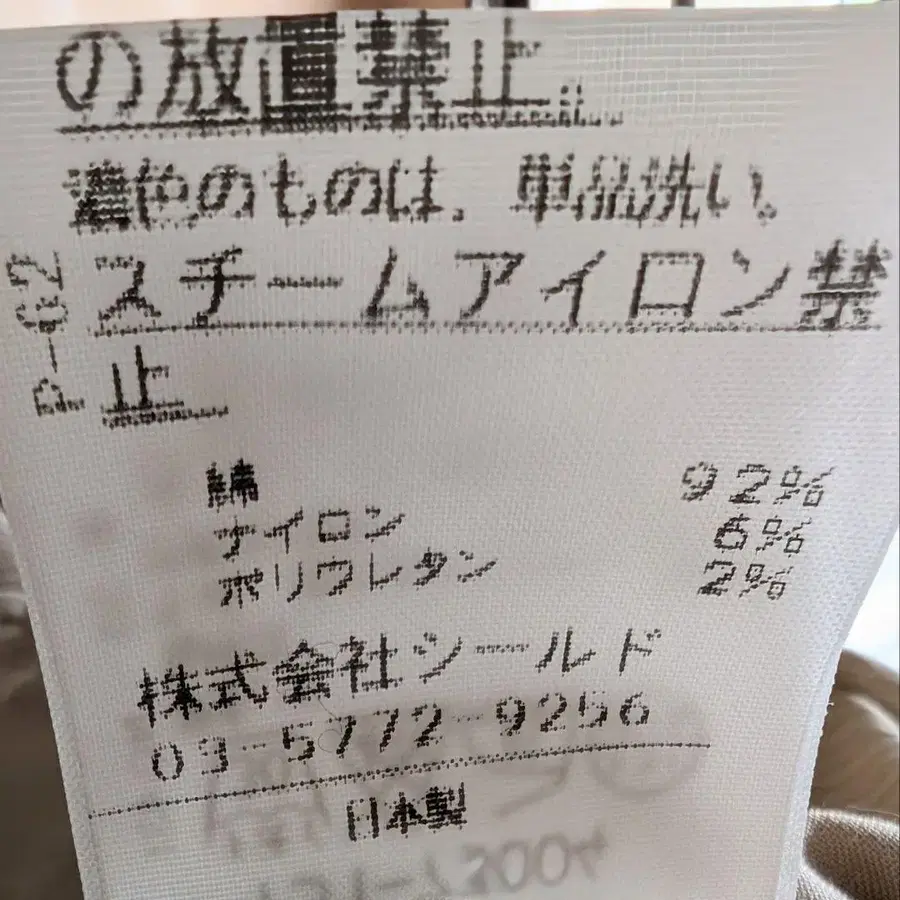 の放置禁止。
濃色のものは、単品洗い。
スチームアイロン禁
止
P-02
綿 92%
ナイロン 6%
ポリウレタン 2%
株式会社シールド
03-5772-9256
日本製